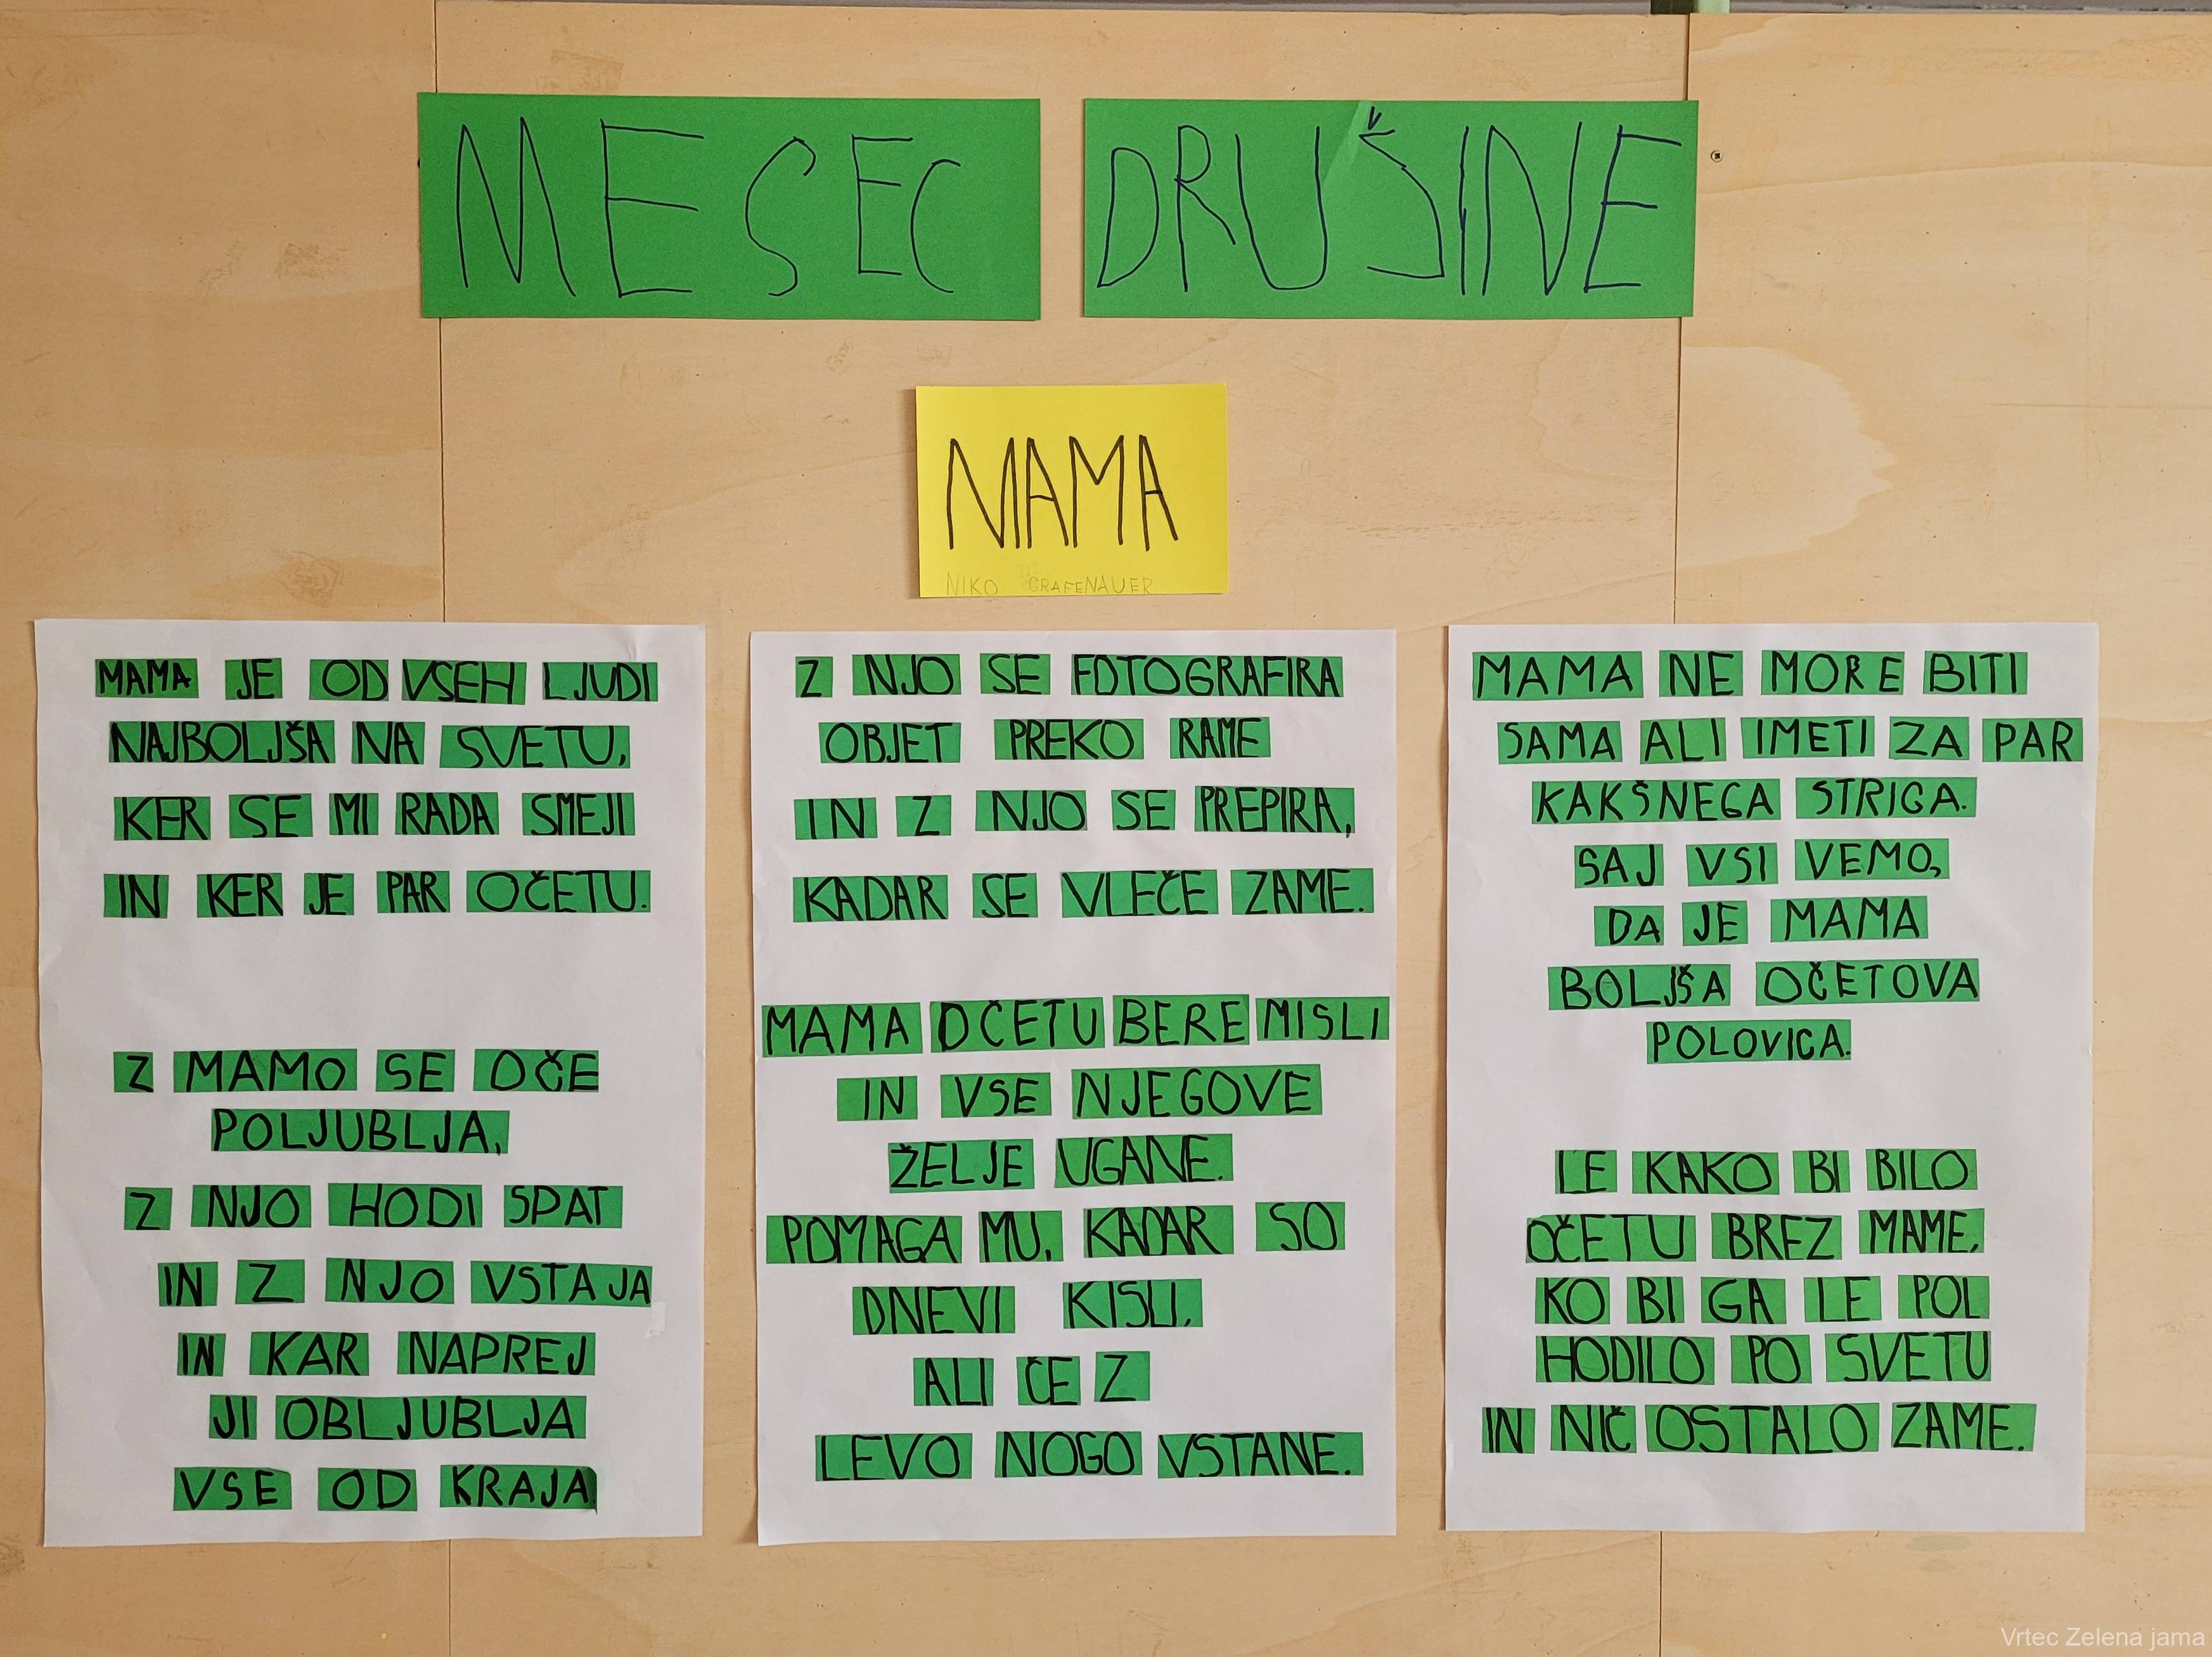 MESEC DRUŠINE
MAMA
NIKO GRAFENAUER
MAMA JE OD VSEH LJUDI
NAJBOLJŠA NA SVETU,
KER SE MI RADA SMEJI
IN KER JE PAR OČETU.
Z MAMO SE OČE
POLJUBLJA,
Z NJO HODI SPAT
IN Z NJO VSTAJA
IN KAR NAPREJ
JI OBLJUBLJA
VSE OD KRAJA
Z NJO SE FOTOGRAFIRA
OBJET PREKO RAME
IN Z NJO SE PREPIRA,
KADAR SE VLEČE ZAME.
MAMA OČETU BERE MISLI
IN VSE NJEGOVE
ŽELJE UGANE.
POMAGA MU, KADAR SO
DNEVI KISLI,
ALI ČE Z
LEVO NOGO VSTANE.
MAMA NE MORE BITI
SAMA ALI IMETI ZA PAR
KAKŠNEGA STRICA.
SAJ VSI VEMO,
DA JE MAMA
BOLJŠA OČETOVA
POLOVICA.
LE KAKO BI BILO
OČETU BREZ MAME,
KO BI GA LE POL
HODILO PO SVETU
IN NIČ OSTALO ZAME.
Vrtec Zelena jama